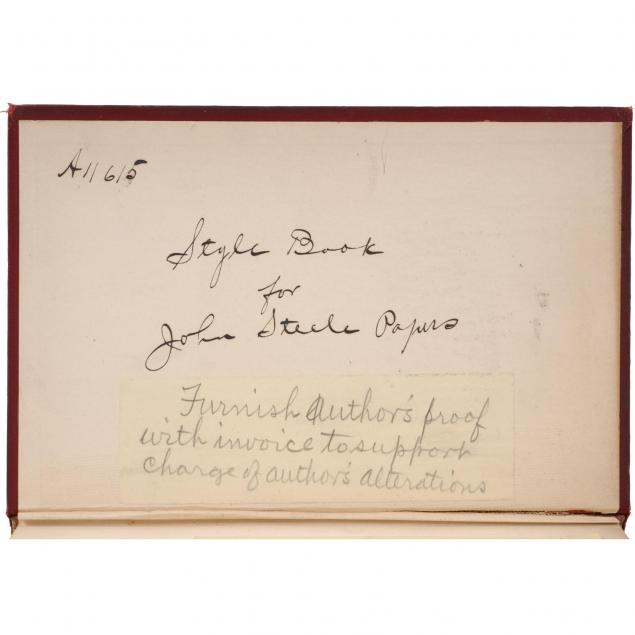 A11615
Style Book
for
John Steele Papers
Furnish Author's proof
with invoice to support
charge of author's alterations